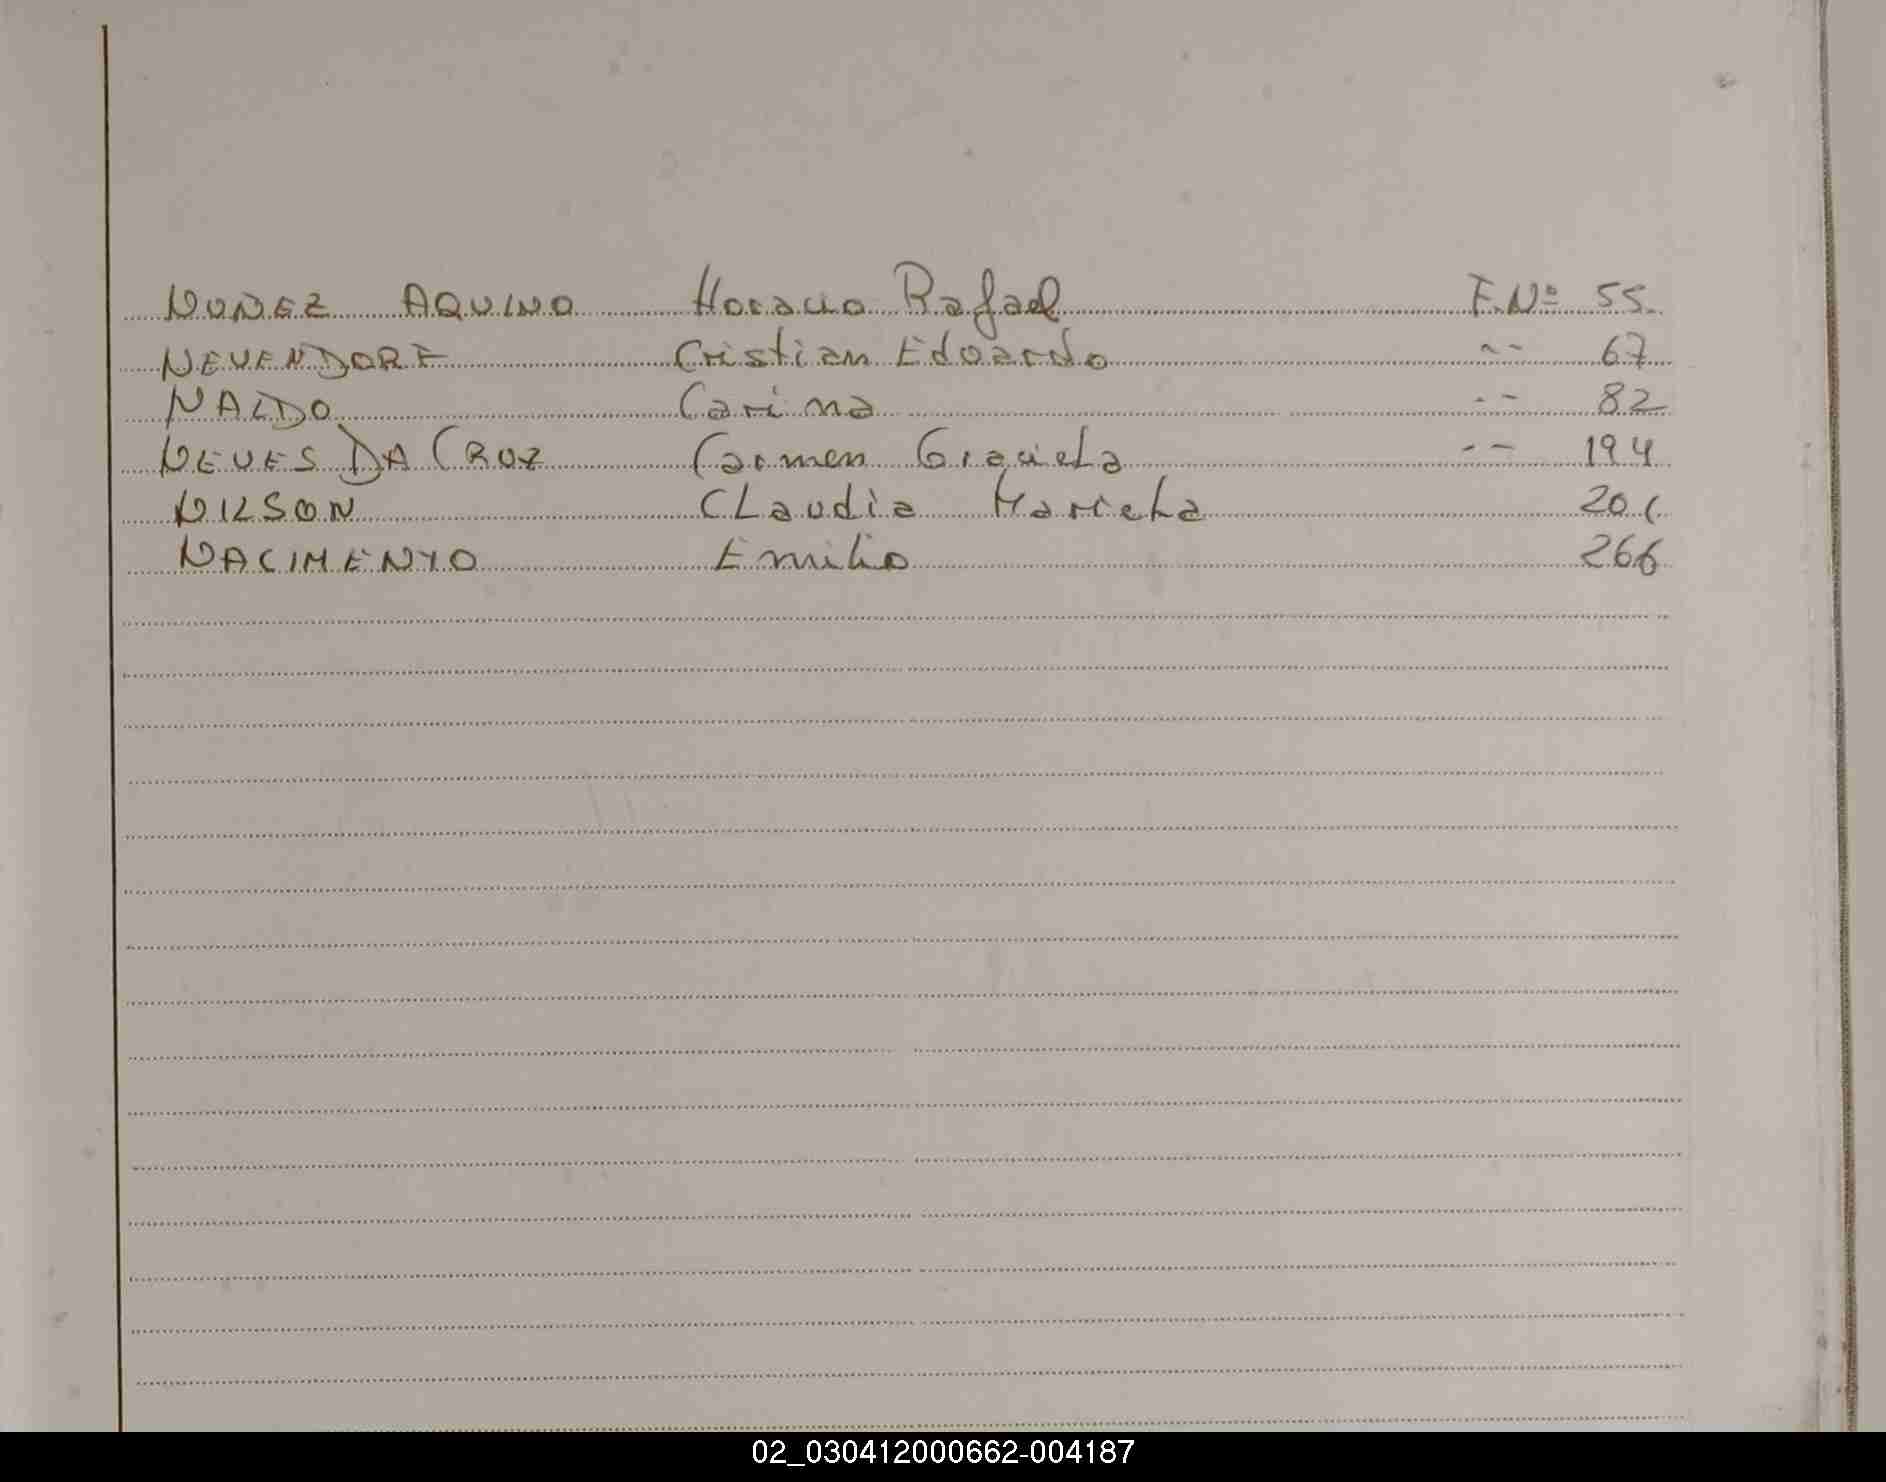 NUÑEZ AQUINO Horacio Rafael F.Nº 55.
NEUENDORF Cristian Eduardo -- 67
NALDO Carina -- 82
NEUES DA CRUZ Carmen Graciela -- 194
NILSON Claudia Mariela 201
NACIMENTO Emilio 266
02_030412000662-004187